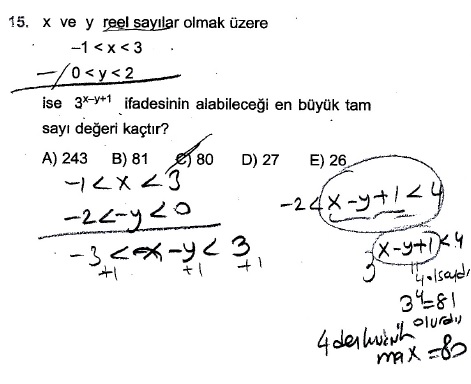 15. x ve y reel sayılar olmak üzere
-1 < x < 3
0 < y < 2
ise 3^{x-y+1} ifadesinin alabileceği en büyük tam
sayı değeri kaçtır?
A) 243 B) 81 C) 80 D) 27 E) 26
-1 < x < 3
-2 < -y < 0
-3 < x - y < 3
+1 +1 +1
-2 < x - y + 1 < 4
3^{x-y+1} < 4
4 olsaydı
3^4 = 81
olurdu
4 den küçük
max = 80